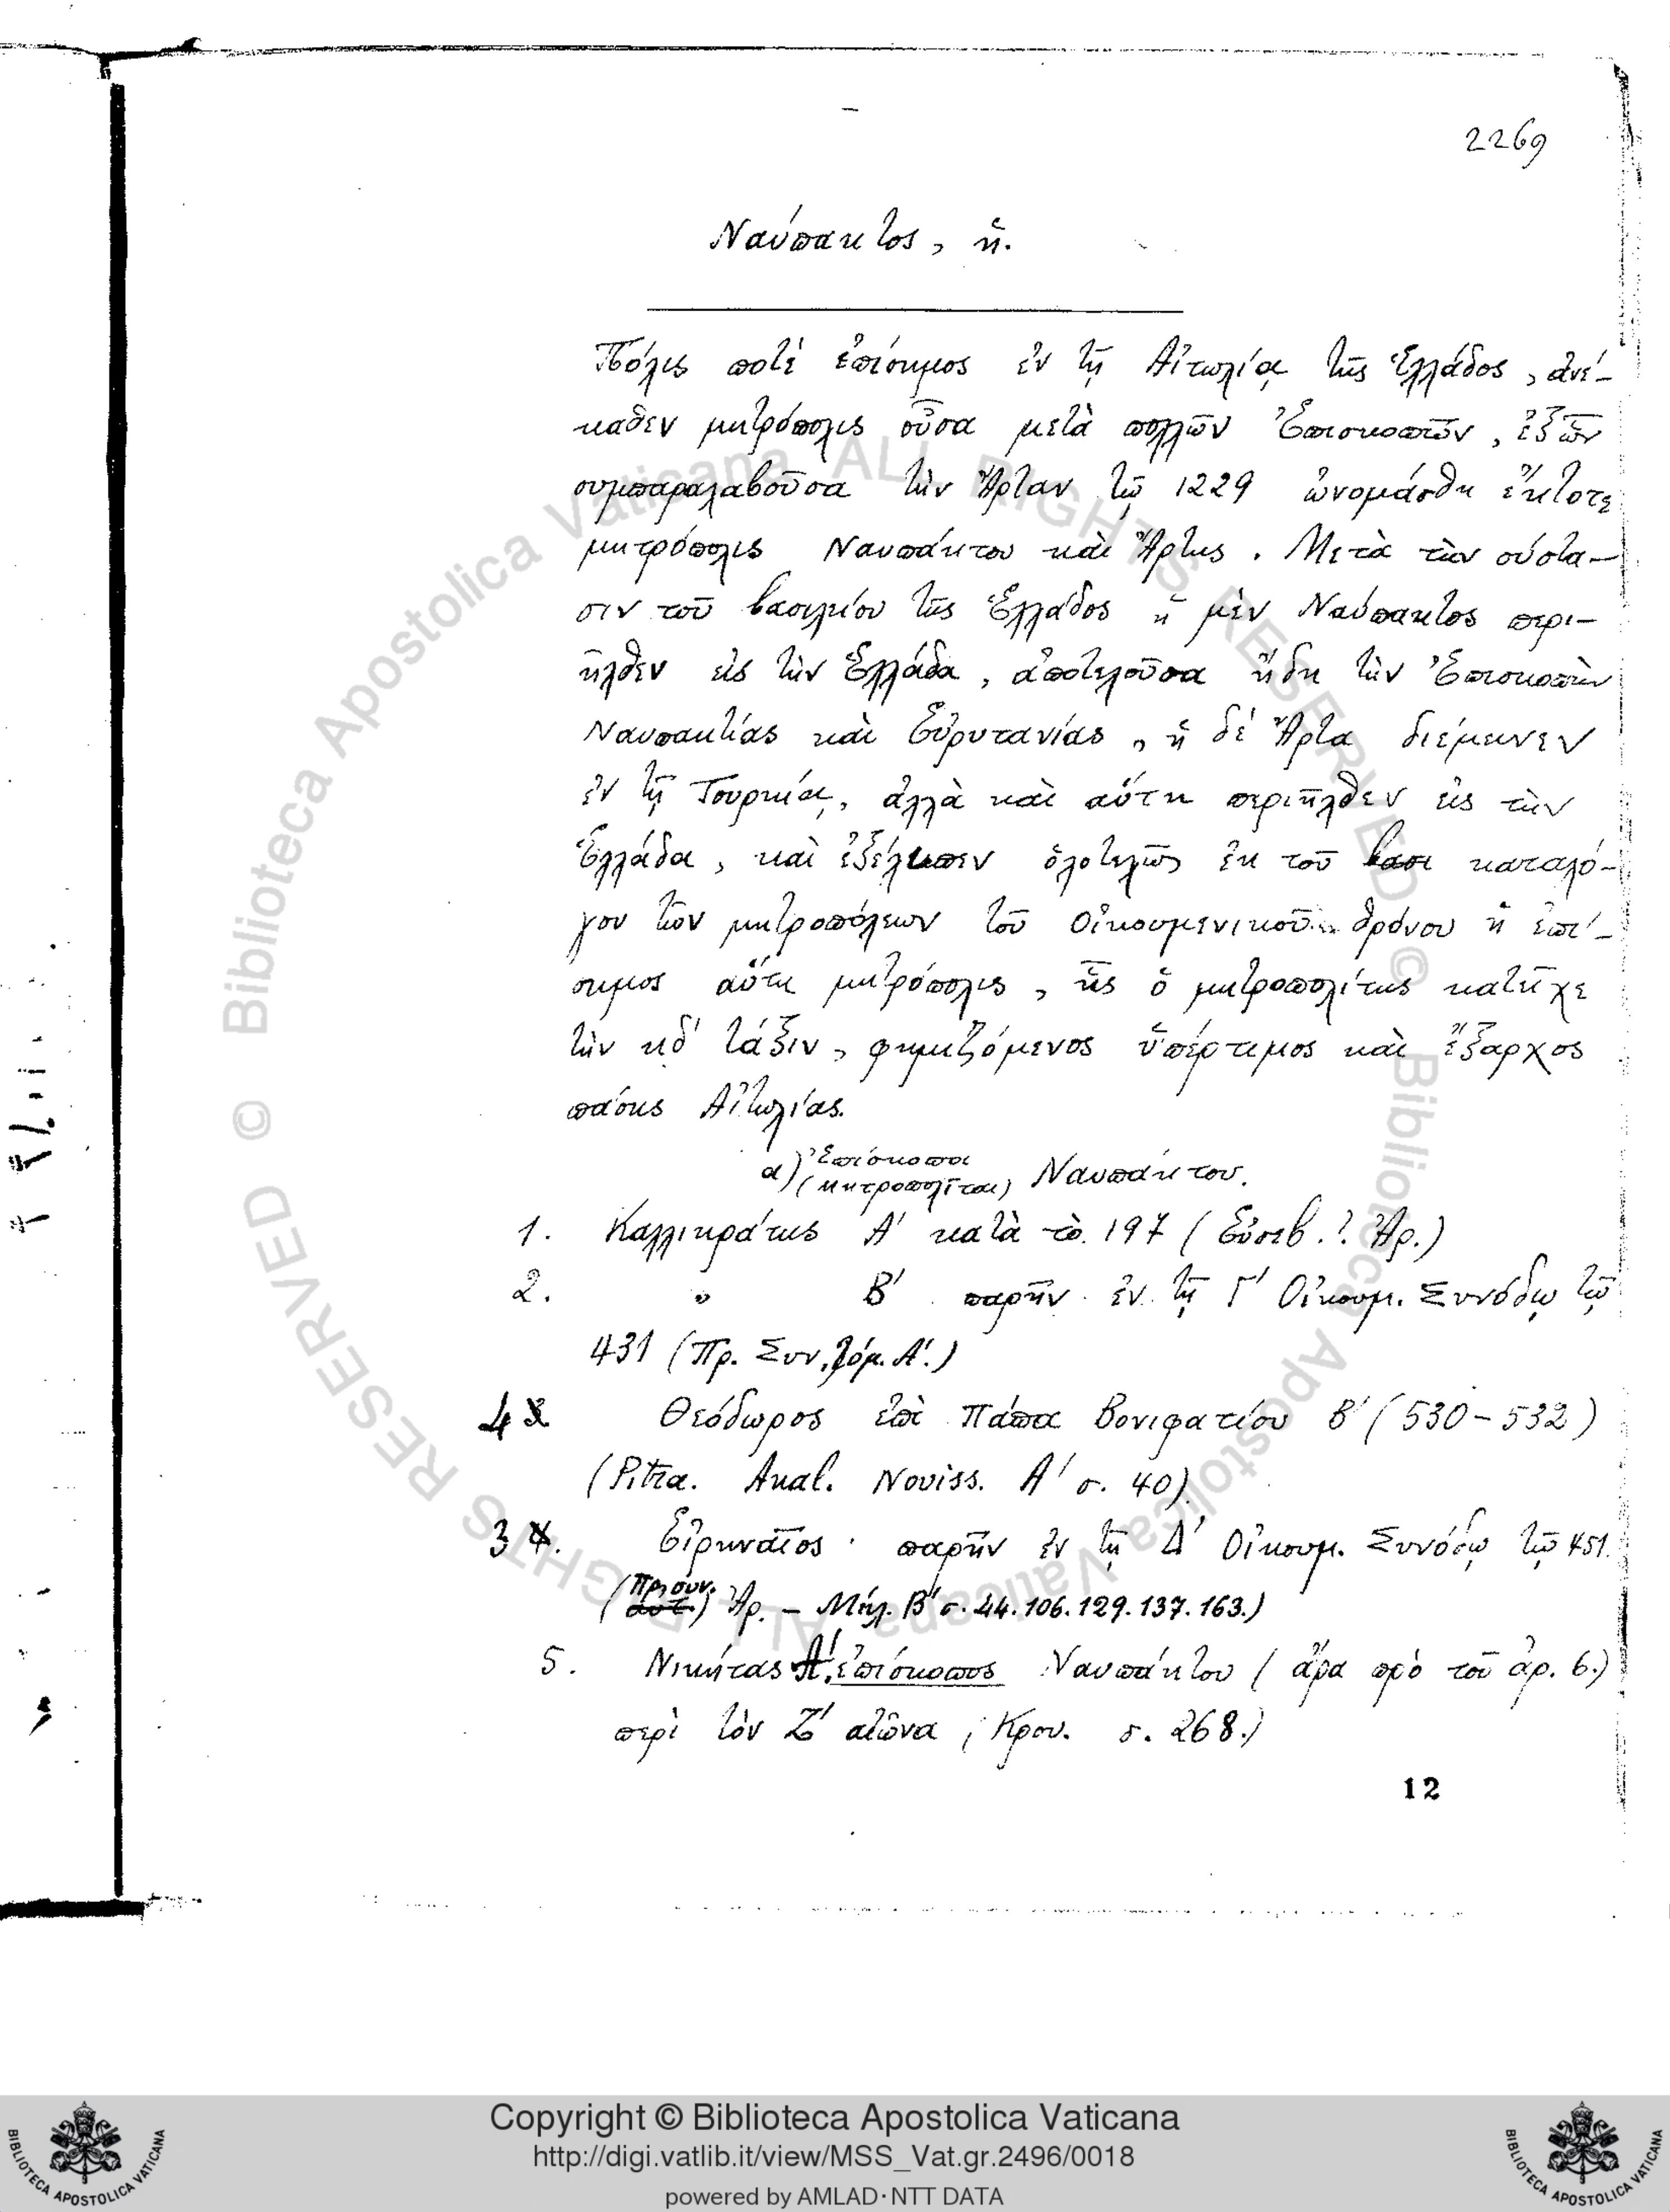 2269
Ναύπακτος, ἡ.
Πόλις ποτὲ ἐπίσημος ἐν τῇ Αἰτωλίᾳ τῆς Ἑλλάδος, ἀνέ-
καθεν μητρόπολις οὖσα μετὰ πολλῶν Ἐπισκοπῶν, ἐξ ὧν
συμπαραλαβοῦσα τὴν Ἄρταν τῷ 1229 ὠνομάσθη ἔκτοτε
μητρόπολις Ναυπάκτου καὶ Ἄρτης. Μετὰ τὴν σύστα-
σιν τοῦ βασιλείου τῆς Ἑλλάδος ἡ μὲν Ναύπακτος περι-
ῆλθεν εἰς τὴν Ἑλλάδα, ἀποτελοῦσα ἤδη τὴν Ἐπισκοπὴν
Ναυπακτίας καὶ Εὐρυτανίας, ἡ δὲ Ἄρτα διέμεινεν
ἐν τῇ Τουρκίᾳ, ἀλλὰ καὶ αὕτη περιῆλθεν εἰς τὴν
Ἑλλάδα, καὶ ἐξέλιπεν ὁλοτελῶς ἐκ τοῦ βασι καταλό-
γου τῶν μητροπόλεων τοῦ Οἰκουμενικοῦ θρόνου ἡ ἐπί-
σημος αὕτη μητρόπολις, ἧς ὁ μητροπολίτης κατεῖχε
τὴν κδ' τάξιν, φημιζόμενος ὑπέρτιμος καὶ ἔξαρχος
πάσης Αἰτωλίας.
α) Ἐπίσκοποι (μητροπολῖται) Ναυπάκτου.
1. Καλλικράτης Α' κατὰ τὸ 197 (Εὐσεβ.? Ἀρ.)
2. " Β' παρῆν ἐν τῇ Γ' Οἰκουμ. Συνόδῳ τῷ
431 (Πρ. Συν. τόμ. Α'.)
4 Θεόδωρος ἐπὶ Πάπα Βονιφατίου Β' (530-532)
(Pitra. Anal. Noviss. Α' σ. 40)
3. Εἰρηναῖος παρῆν ἐν τῇ Δ' Οἰκουμ. Συνόδῳ τῷ 451.
(Πρ. συν.) Ἀρ. - Μάλ. Β' σ. 44. 106. 129. 137. 163.)
5. Νικήτας Α'. ἐπίσκοπος Ναυπάκτου (ἄρα πρὸ τοῦ ἀρ. 6.)
περὶ τὸν Ζ' αἰῶνα (Κρου. σ. 268.)
12
© Biblioteca Apostolica Vaticana ALL RIGHTS RESERVED © Biblioteca Apostolica Vaticana ALL RIGHTS RESERVED
Copyright © Biblioteca Apostolica Vaticana
http://digi.vatlib.it/view/MSS_Vat.gr.2496/0018
powered by AMLAD·NTT DATA
BIBLIOTECA APOSTOLICA VATICANA
BIBLIOTECA APOSTOLICA VATICANA